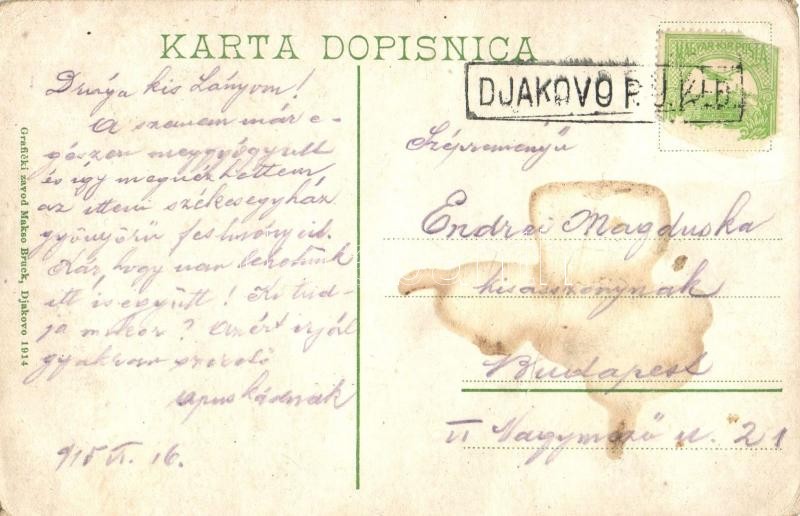 KARTA DOPISNICA
MAGYAR KIR. POSTA
DJAKOVO P. U.
Drága kis Lányom!
A szemem már e-
gészen meggyógyult
és így megnézhettem
az itteni székesegyház
gyönyörű festményeit.
Kár, hogy nem lehetünk
itt is együtt! Ki tud-
ja mikor? Azért írjál
gyakran szerető
apuskádnak
915 VI. 16.
Szépreményű
Endrei Magduska
kisasszonynak
Budapest
VI Nagymező u. 21
Grafički zavod Makso Bruck, Djakovo 1914